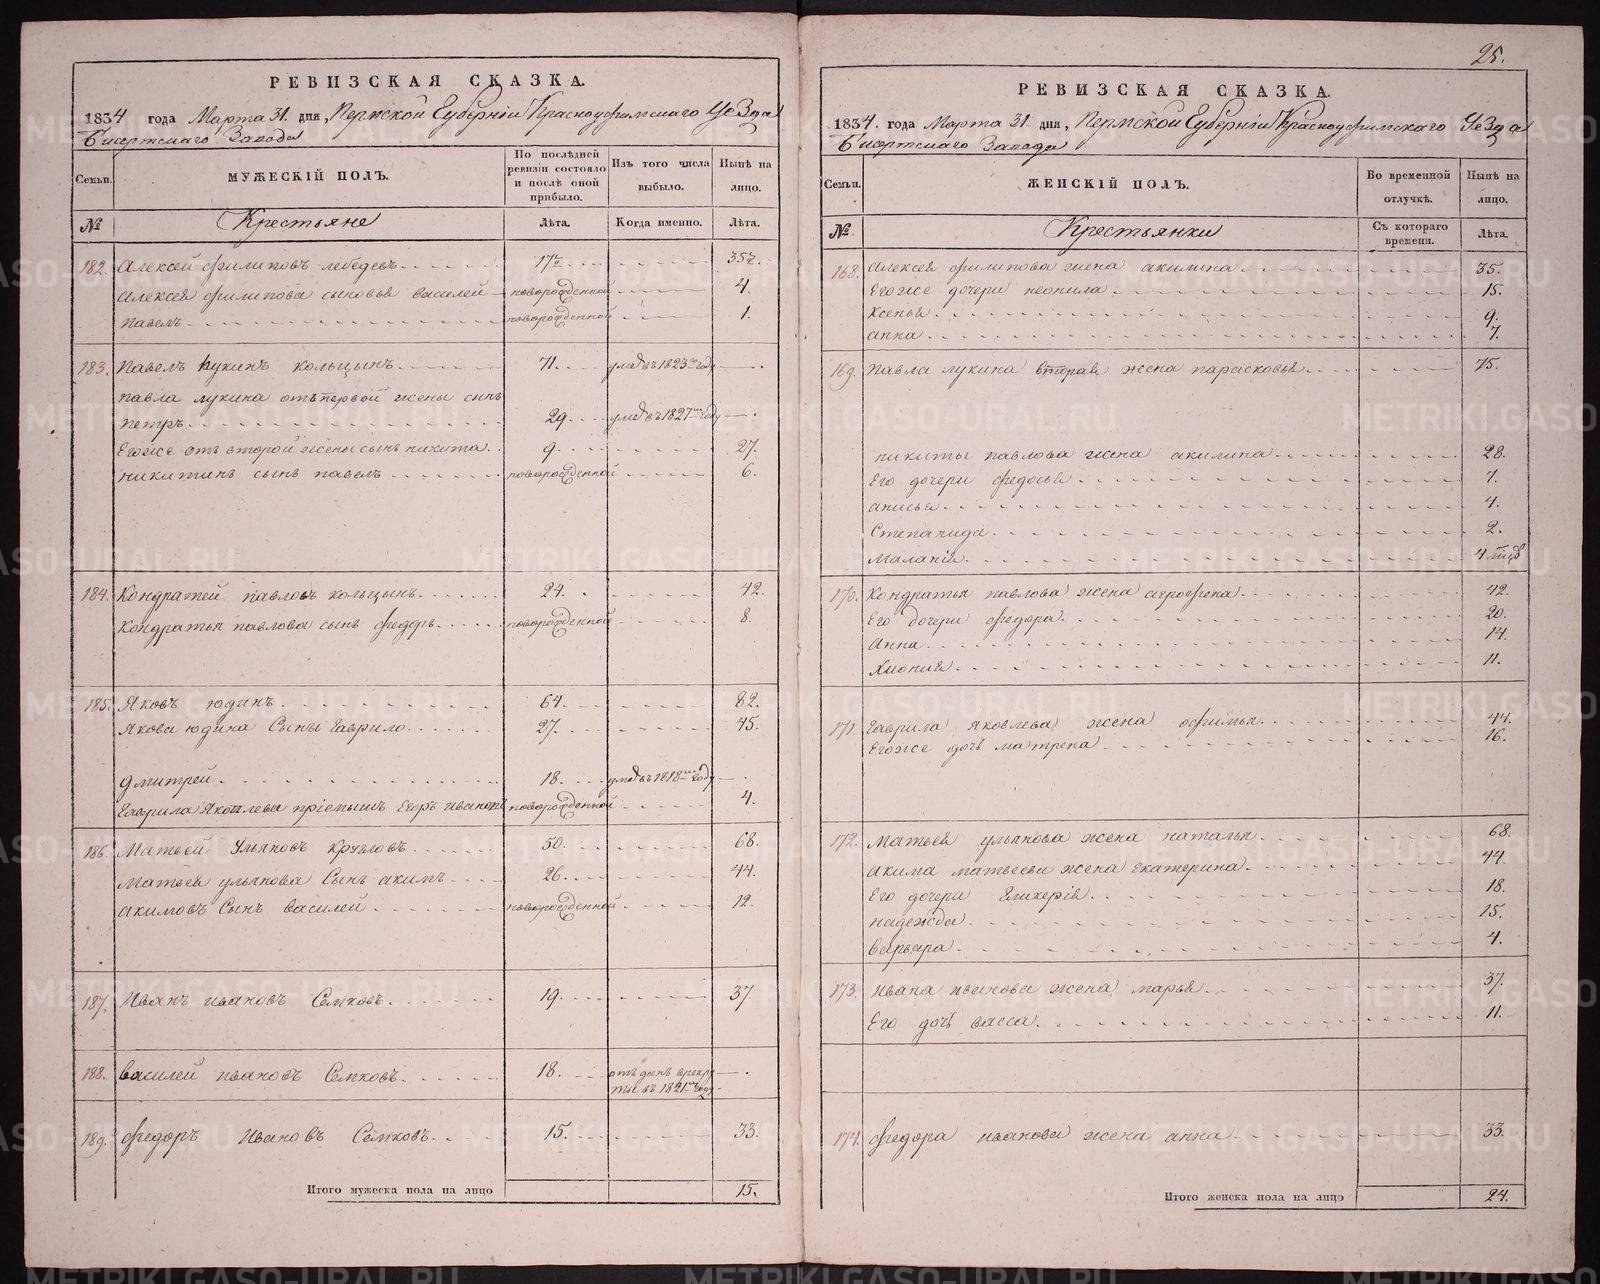 РЕВИЗСКАЯ СКАЗКА.
1834 года Марта 31. дня, Пермской Губернiи Красноуфимскаго Уезда
Бисертскаго Завода
Семьи.
МУЖЕСКIЙ ПОЛЪ.
По послѣдней ревизiи состояло и послѣ оной прибыло.
Изъ того числа выбыло.
Нынѣ на лицо.
№
Крестьяне
Лѣта.
Когда именно.
Лѣта.
182. Алексей Филиповъ лебедевъ 17 35
Алексея Филипова сыновья василей новорожденной 4.
павелъ новорожденной 1.
183. павелъ лукинъ кольцынъ 71. умре въ 1823 году
павла лукина отъ первой жены сынъ
петръ 29. умре въ 1827 году
Егоже отъ второй жены сынъ никита 9. 27.
никитинъ сынъ павелъ новорожденной 6.
184. Кондратей павловъ кольцынъ 24. 42.
Кондратья павлова сынъ федоръ новорожденной 8.
185. Яковъ юдинъ 64. 82.
Якова юдина Сыны Гаврило 27. 45.
дмитрей 18. умре въ 1818 году
Гаврила Яковлева прiемышъ Егоръ ивановъ новорожденной 4.
186. Матвей Ульяновъ Кругловъ 50. 68.
Матвея ульянова Сынъ акимъ 26. 44.
акимовъ Сынъ василей новорожденной 12.
187. Иванъ ивановъ Семковъ 19. 37
188. василей ивановъ Семковъ 18. отъданъ врекру
ты въ 1821 году
189. федоръ Ивановъ Семковъ 15. 33.
Итого мужеска пола на лицо 15.
25.
РЕВИЗСКАЯ СКАЗКА.
1834. года Марта 31 дня, Пермской Губернiи Красноуфимскаго Уезда
Бисертскаго Завода
Семьи.
ЖЕНСКIЙ ПОЛЪ.
Во временной отлучкѣ.
Нынѣ на лицо.
№
Крестьянки
Съ котораго времени.
Лѣта.
168. Алексея филипова жена акилина 35.
Егоже дочери неонила 15.
Ксенья 9.
анна 7.
169. Павла лукина вторая жена парасковья 75.
никиты павлова жена акилина 28.
Его дочери федосья 7.
анисья 4.
Степанида 2.
Маланiя 4 мцов
170. Кондратья павлова жена агрофена 42.
Его дочери федора 20.
Анна 14.
Хионiя 11.
171. Гаврила Яковлева жена офимья 44.
Егоже дочь матрена 16.
172. Матвея ульянова жена наталья 68.
акима матвеева жена Екатерина 44.
Его дочери Гликерiя 18.
надежда 15.
варвара 4.
173. Ивана иванова жена марья 37.
Его дочь васса 11.
174. федора иванова жена анна 33.
Итого женска пола на лицо 24.
METRIKI.GASO-URAL.RU